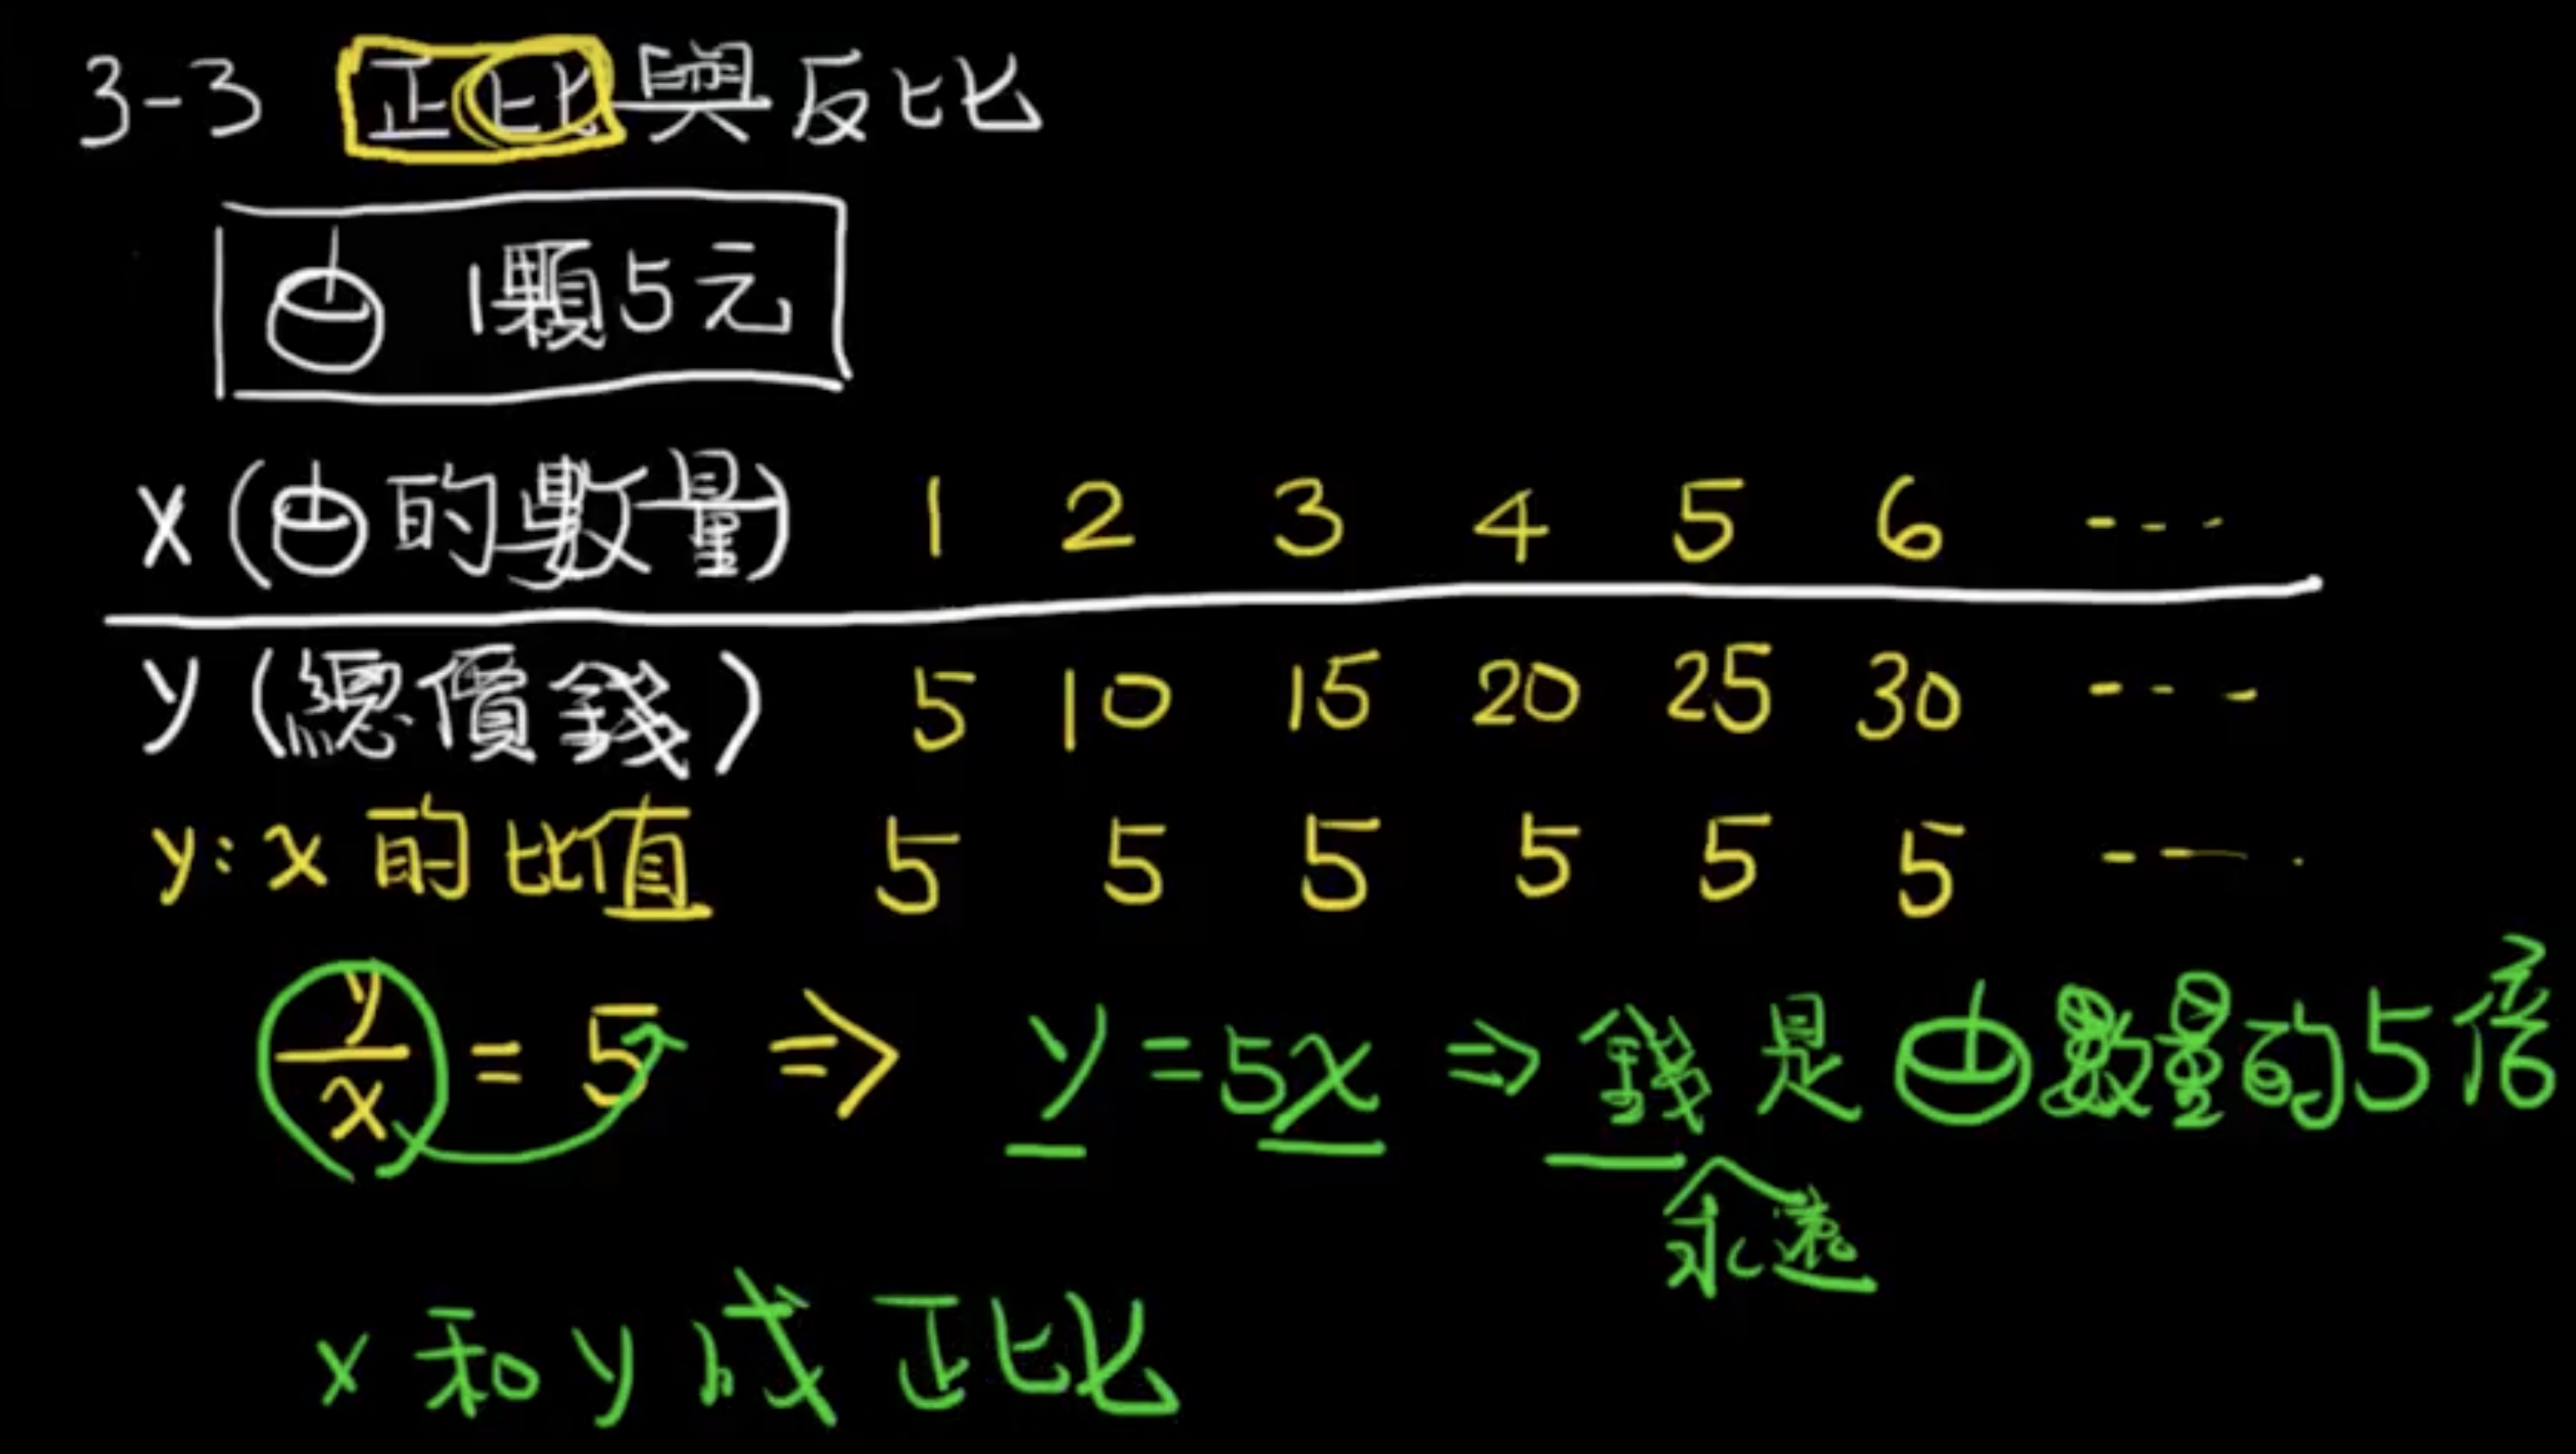 3-3 正比與反比
1顆5元
x (的數量) 1 2 3 4 5 6 ---
y (總價錢) 5 10 15 20 25 30 ---
y:x 的比值 5 5 5 5 5 5 ---
y/x = 5 ⇒ y = 5x ⇒ 錢是數量的5倍
永遠
x和y成正比